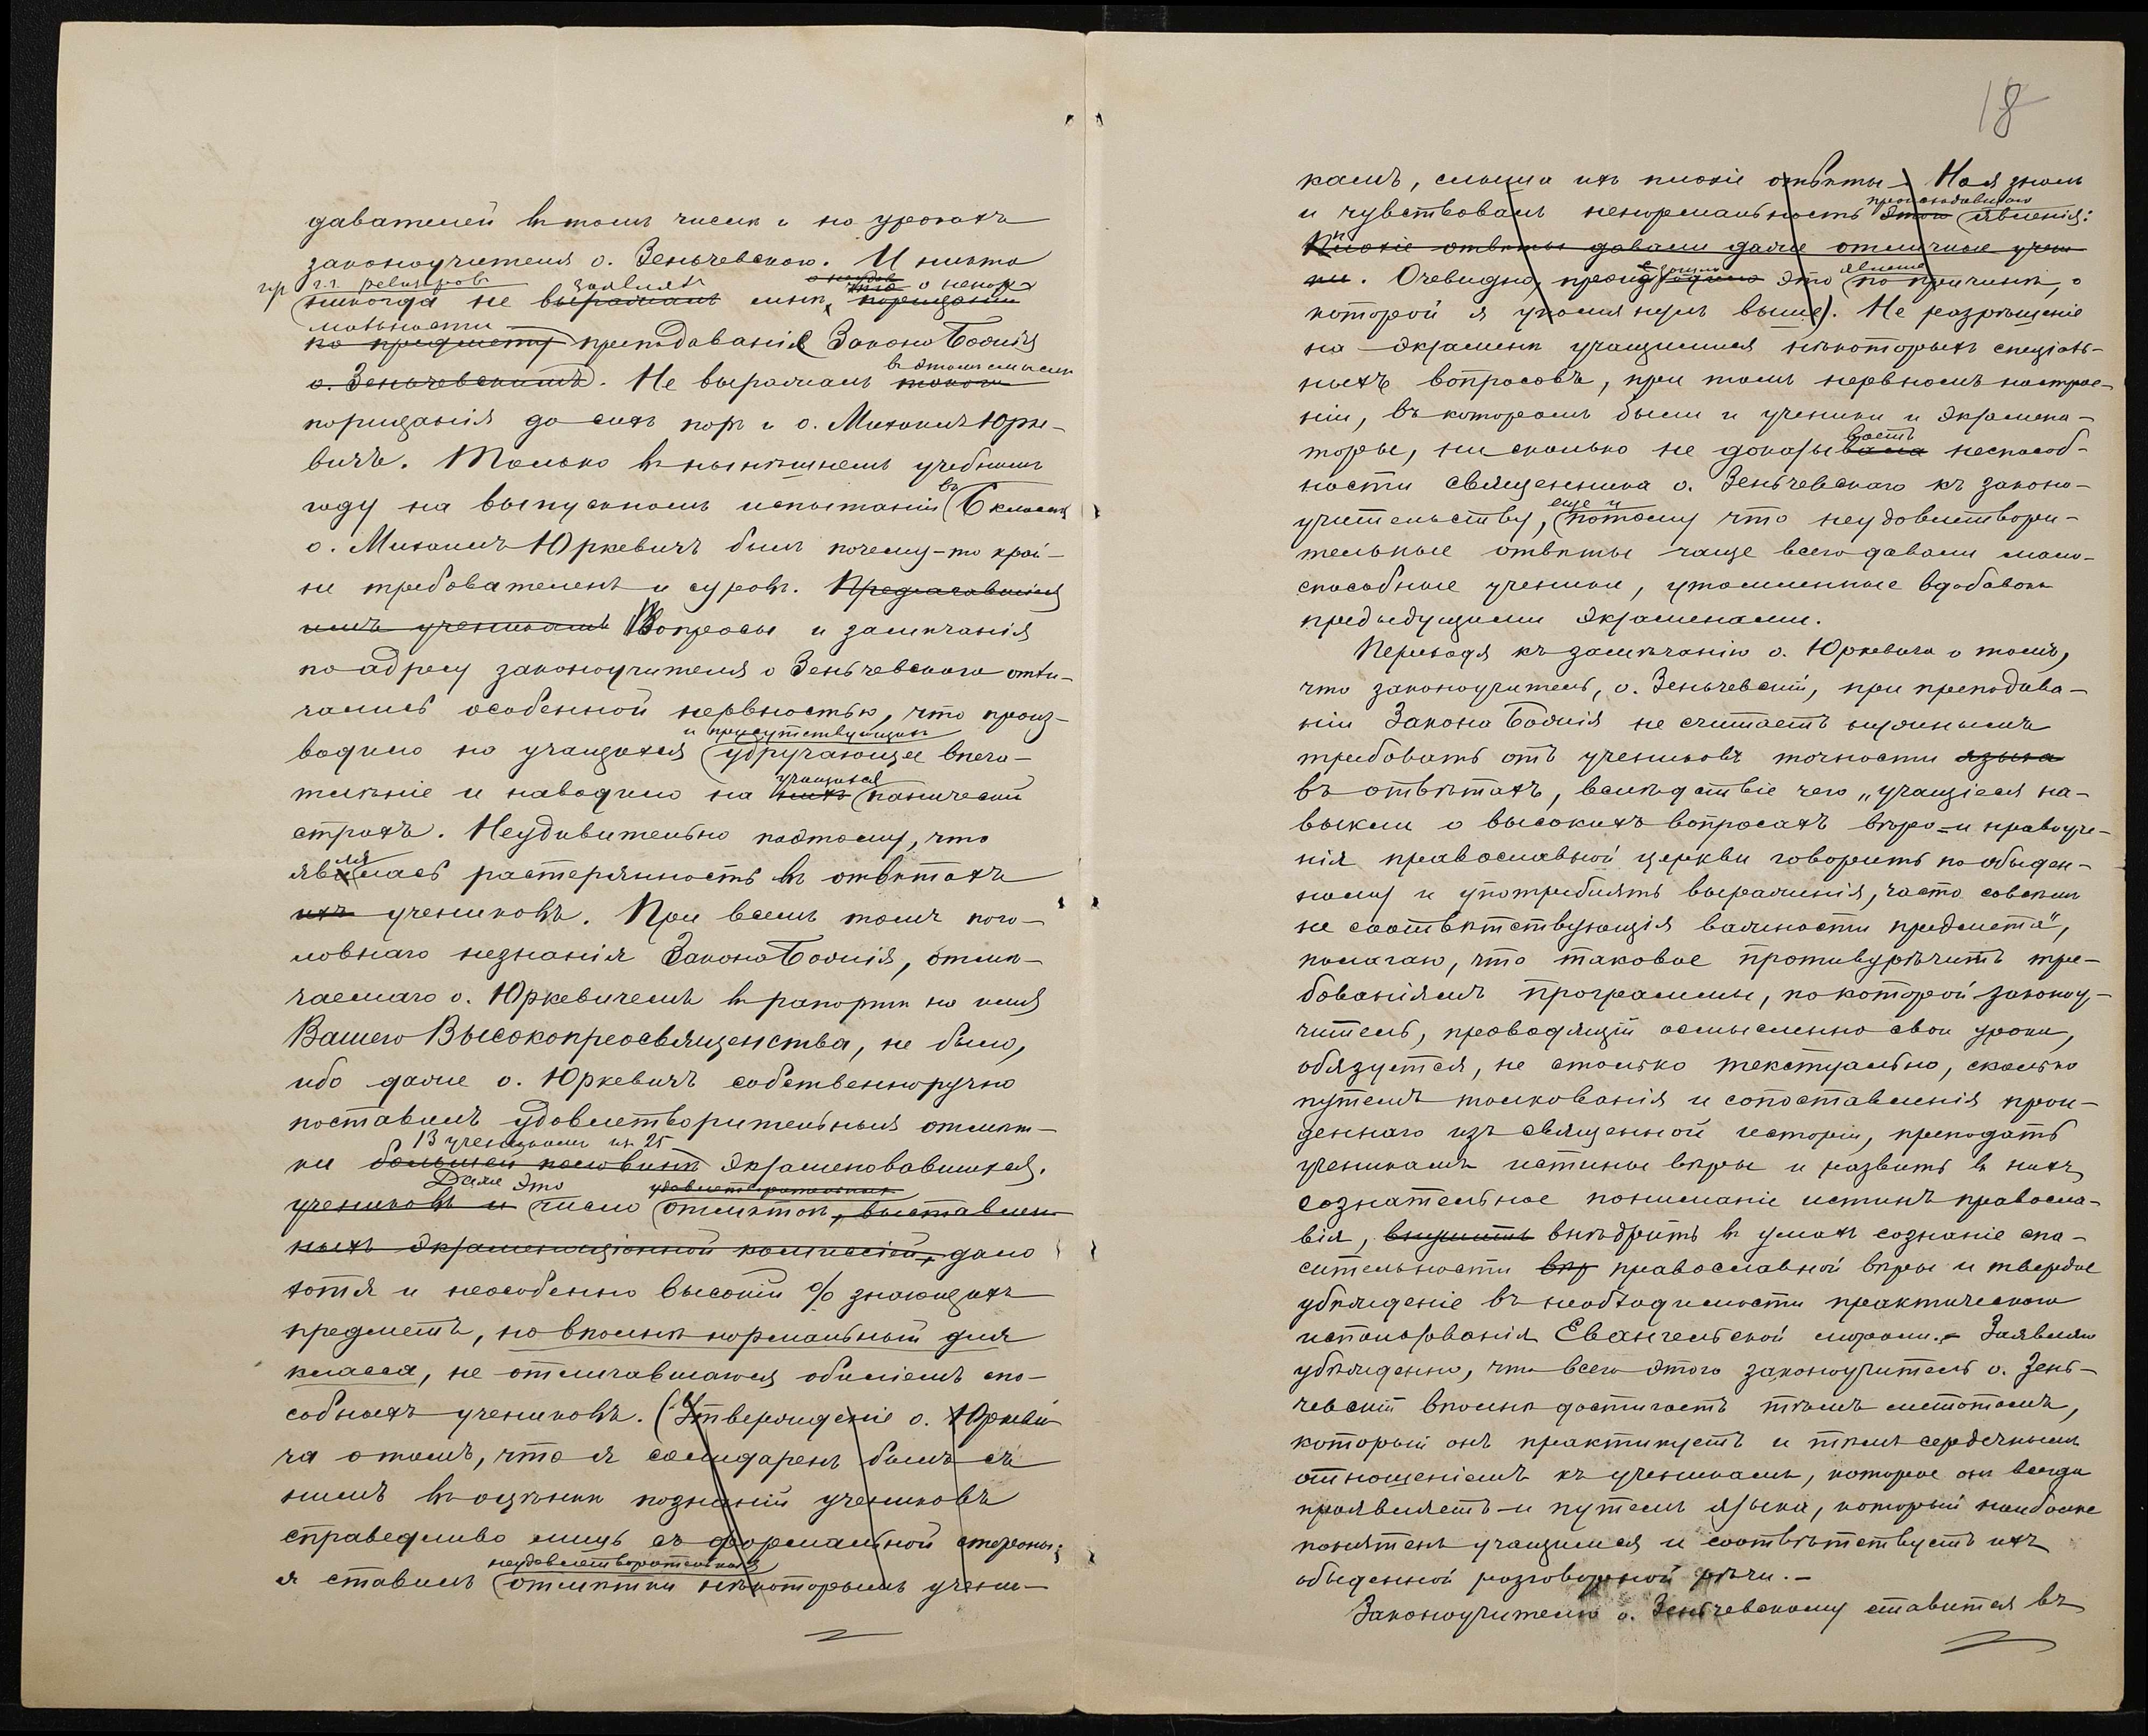 давателей въ томъ числѣ и на урокахъ
законоучителя о. Зеньчевского. И никто
гр г.г. ревизоровъ заявлялъ о ненор-
никогда не выражалъ мнѣ, порицанія
мальности
по предмету преподаванія Закона Божія
о. Зеньчевскимъ. Не выражалъ такого
въ этомъ смыслѣ
порицанія до сихъ поръ и о. Михаилъ Юрке-
вичъ. Только въ нынѣшнемъ учебномъ
году на выпускномъ испытаніи въ 6 классѣ
о. Михаилъ Юркевичъ былъ почему-то край-
не требователенъ и суровъ. Предлагавшіеся
имъ ученикамъ Вопросы и замѣчанія
по адресу законоучителя о Зеньчевского отли-
чались особенной нервностью, что произ-
и присутствующихъ
водило на учащихся удручающее впеча-
учащихся
тлѣніе и наводило на нихъ паническій
страхъ. Неудивительно поэтому, что
явилась растерянность въ отвѣтахъ
ихъ учениковъ. При всемъ томъ пого-
ловнаго незнанія Закона Божія, отмѣ-
чаемаго о. Юркевичемъ въ рапортѣ на имя
Вашего Высокопреосвященства, не было,
ибо даже о. Юркевичъ собственноручно
поставилъ удовлетворительныя отмѣт-
13 ученикамъ изъ 25
ки большей половинѣ экзаменовавшихся.
Даже это удовлетворительныхъ
учениковъ и число отмѣтокъ, выставлен-
ныхъ экзаменаціонной коммиссіей, дало
хотя и неособенно высокій % знающихъ
предметъ, но вполнѣ нормальный для
класса, не отличавшагося обиліемъ спо-
собныхъ учениковъ. (Утвержденіе о. Юркеви-
ча о томъ, что я солидаренъ былъ съ
нимъ въ оцѣнкѣ познаній учениковъ
справедливо лишь съ формальной стороны:
неудовлетворительныя
я ставилъ отмѣтки нѣкоторымъ учени-
18
камъ, слыша ихъ плохіе отвѣты. Но я зналъ
происходившаго
и чувствовалъ ненормальность этого явленія:
Плохіе отвѣты давали даже отличные учени-
ки. Очевидно, происходило это явленіе по причинѣ, о
которой я упомянулъ выше). Не разрѣшеніе
на экзаменѣ учащимися нѣкоторыхъ спеціаль-
ныхъ вопросовъ, при томъ нервномъ настрое-
ніи, въ которомъ были и ученики и экзамена-
торы, нисколько не доказывала неспособ-
ваетъ
ности священника о. Зеньчевскаго къ законо-
еще и
учительству, потому что неудовлетвори-
тельные отвѣты чаще всего давали мало-
способные ученики, утомленные вдобавокъ
предыдущими экзаменами.
Переходя къ замѣчанію о. Юркевича о томъ,
что законоучитель, о. Зеньчевскій, при преподава-
ніи Закона Божія не считаетъ нужнымъ
требовать отъ учениковъ точности языка
въ отвѣтахъ, вслѣдствіе чего „учащіеся на-
выкли о высокихъ вопросахъ вѣро- и нравоуче-
нія православной церкви говорить по обыден-
ному и употреблять выраженія, часто совсѣмъ
не соотвѣтствующія важности предмета",
полагаю, что таковое противурѣчитъ тре-
бованіямъ программы, по которой законоу-
читель, проводящій осмысленно свои уроки,
обязуется, не столько текстуально, сколько
путемъ толкованія и сопоставленія прой-
деннаго изъ священной исторіи, преподать
ученикамъ истины вѣры и развить въ нихъ
сознательное пониманіе истинъ правосла-
вія, внушить внѣдрить въ умахъ сознаніе спа-
сительности вѣр православной вѣры и твердое
убѣжденіе въ необходимости практическаго
использованія Евангельской морали. - Заявляю
убѣжденно, что всего этого законоучитель о. Зень-
чевскій вполнѣ достигаетъ тѣмъ методомъ,
который онъ практикуетъ и тѣмъ сердечнымъ
отношеніемъ къ ученикамъ, которое онъ всегда
проявляетъ и путемъ языка, который наиболѣе
понятенъ учащимся и соотвѣтствуетъ ихъ
обыденной разговорной рѣчи. -
Законоучителю о. Зеньчевскому ставится въ